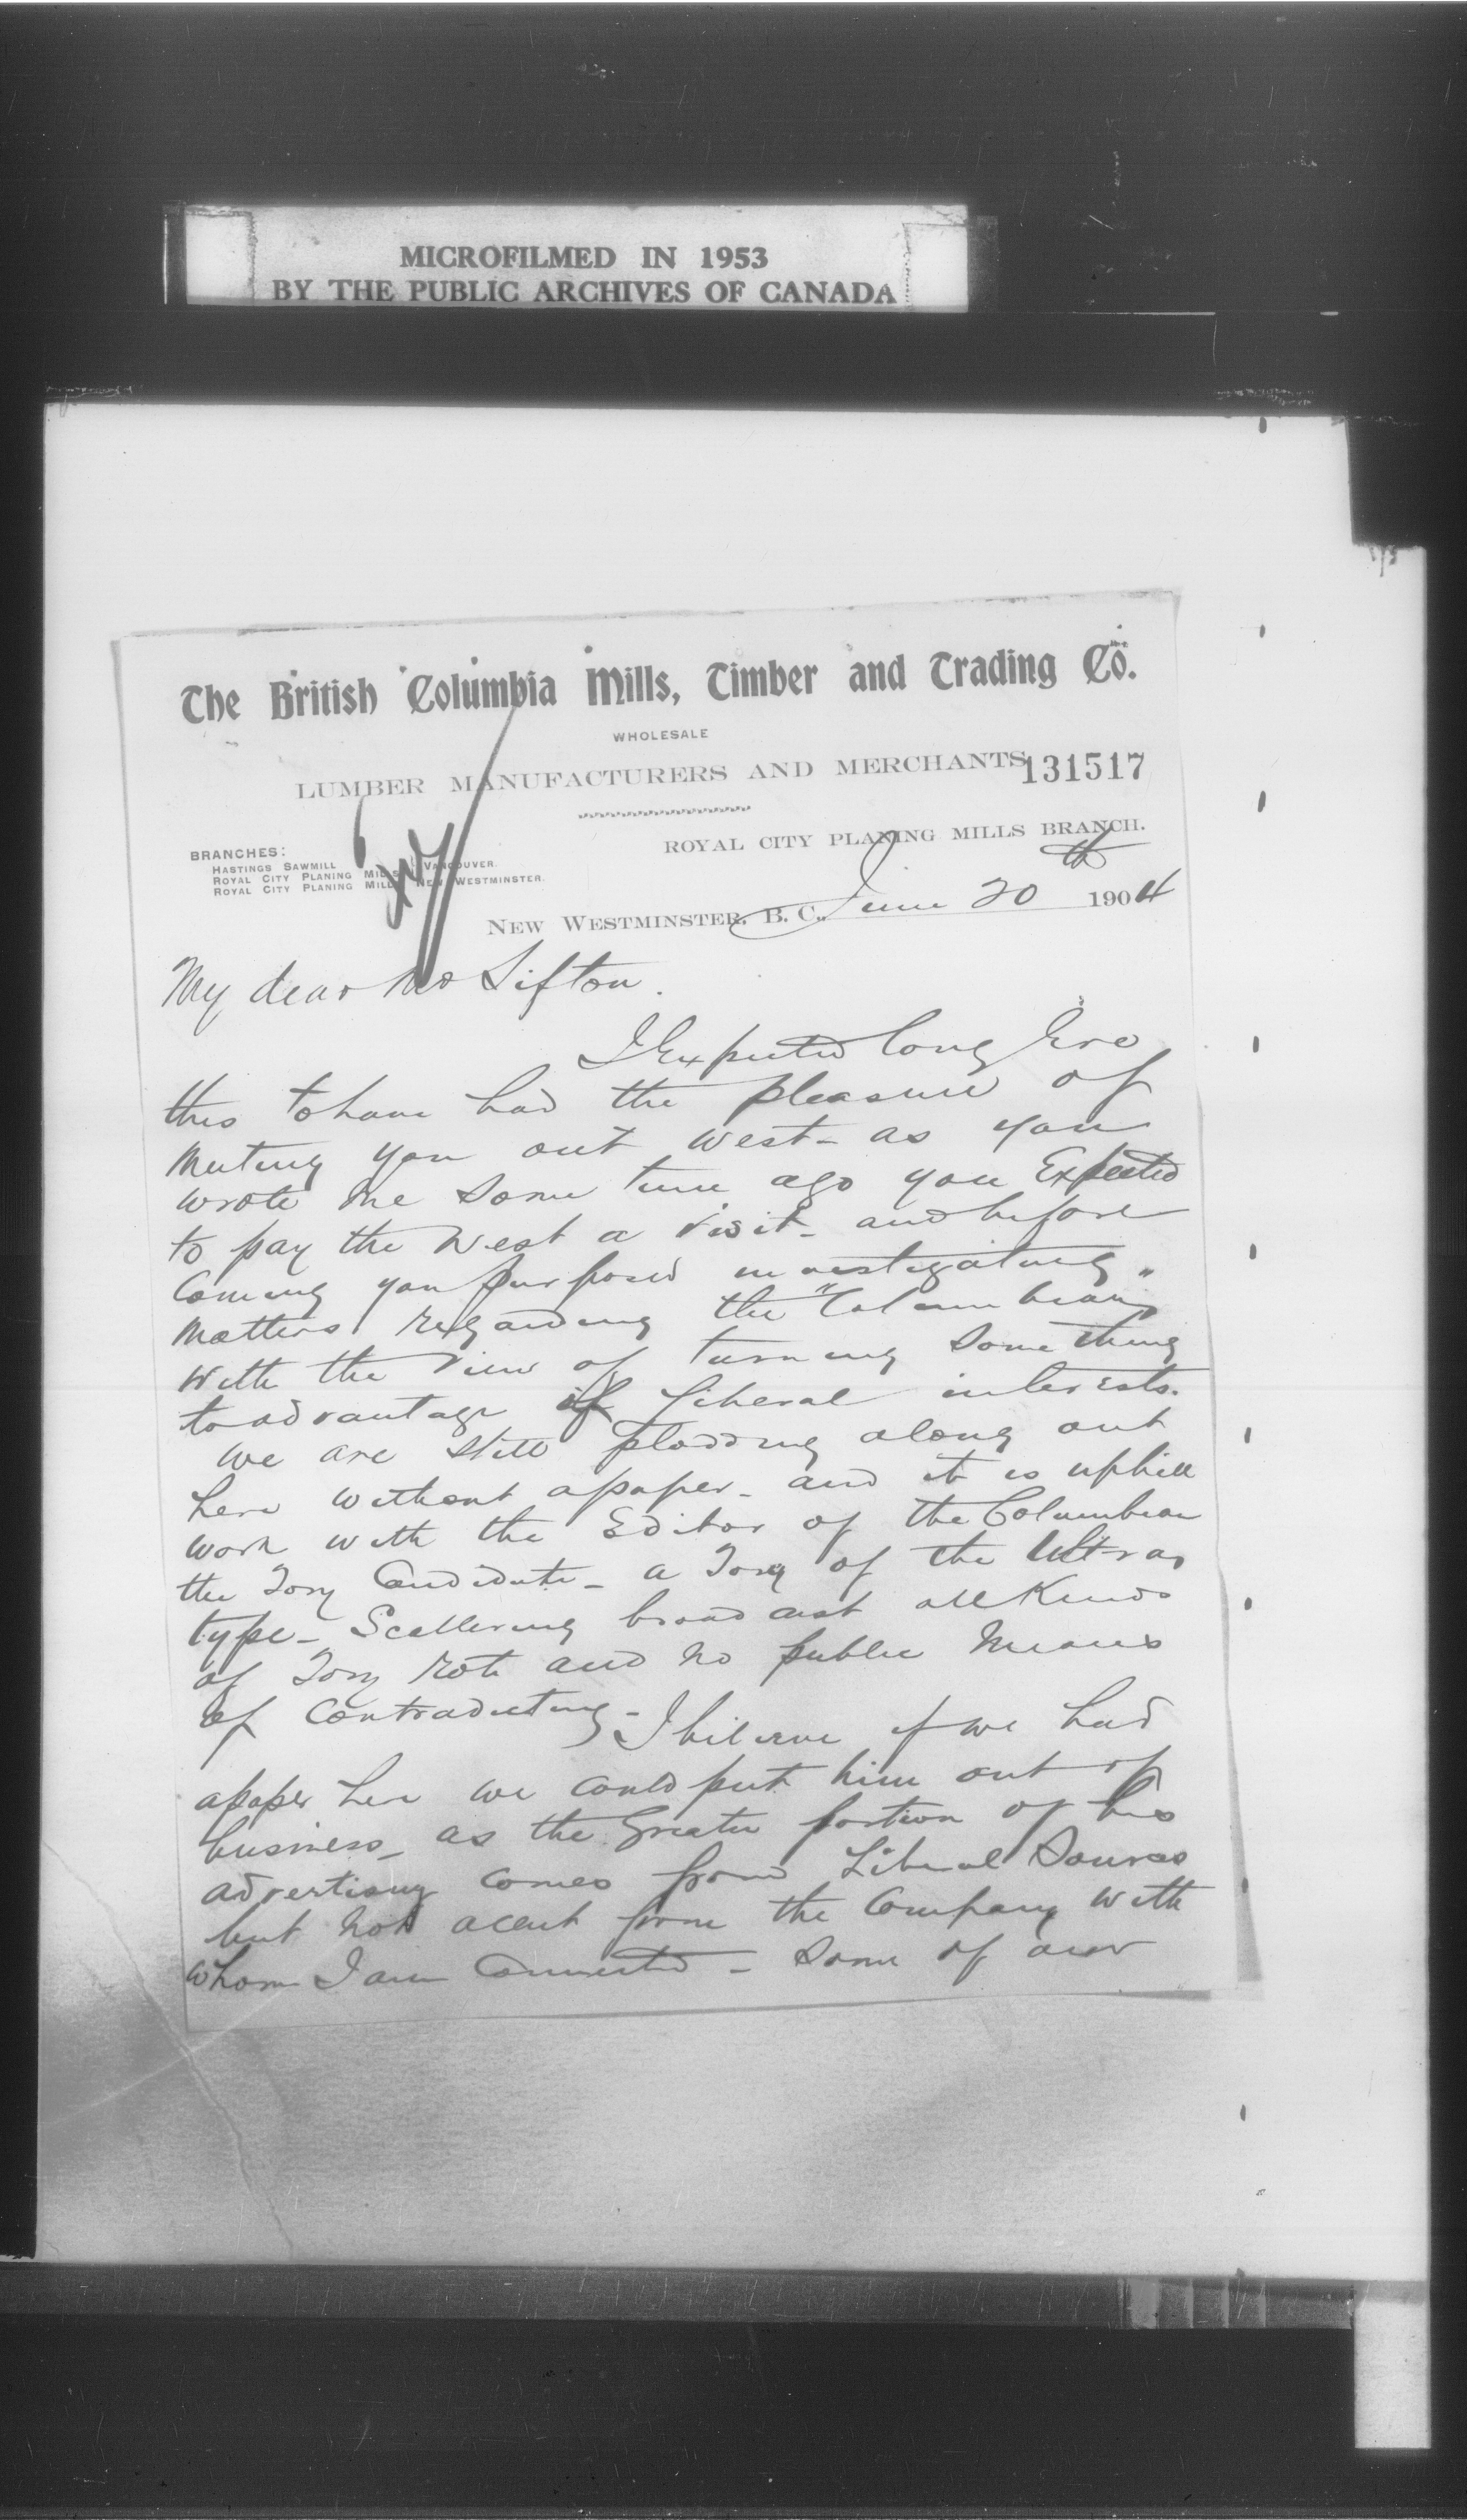 MICROFILMED IN 1953
BY THE PUBLIC ARCHIVES OF CANADA
The British Columbia Mills, Timber and Trading Co.
WHOLESALE
LUMBER MANUFACTURERS AND MERCHANTS
131517
ROYAL CITY PLANING MILLS BRANCH.
BRANCHES:
HASTINGS SAWMILL
ROYAL CITY PLANING MILLS } VANCOUVER.
ROYAL CITY PLANING MILLS NEW WESTMINSTER.
NEW WESTMINSTER, B. C., June 20th 1904
My dear Mr Sifton.
I Expected long Ere
this to have had the pleasure of
Meeting you out west - as you
wrote me some time ago you Expected
to pay the West a visit - and before
Coming you purposed investigating
Matters regarding the "Columbian"
with the view of turning something
to advantage of Liberal interests.
We are still plodding along out
here without a paper - and it is uphill
work with the Editor of the Columbian
the Tory Candidate - a Tory of the Ultra
type - Scattering broadcast all Kinds
of Tory rot and no public Means
of Contradicting - I believe if we had
a paper here we could put him out of
business - as the Greater portion of his
advertising comes from Liberal Sources
but not a cent from the Company with
whom I am Connected - Some of our